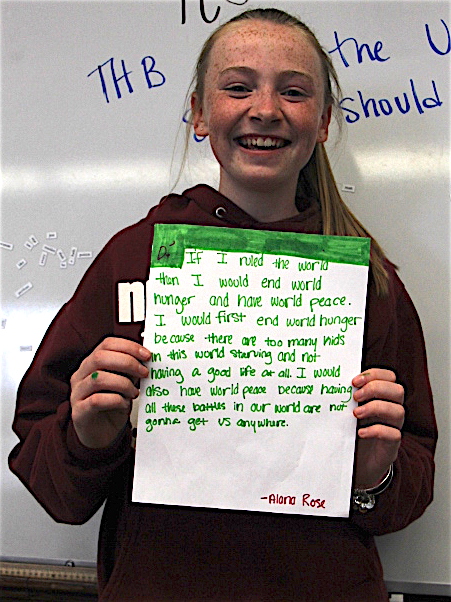 THB
the U
should
If I ruled the world
than I would end world
hunger and have world peace.
I would first end world hunger
because there are too many kids
in this world starving and not
having a good life at all. I would
also have world peace because having
all these battles in our world are not
gonna get us anywhere.
-Alana Rose